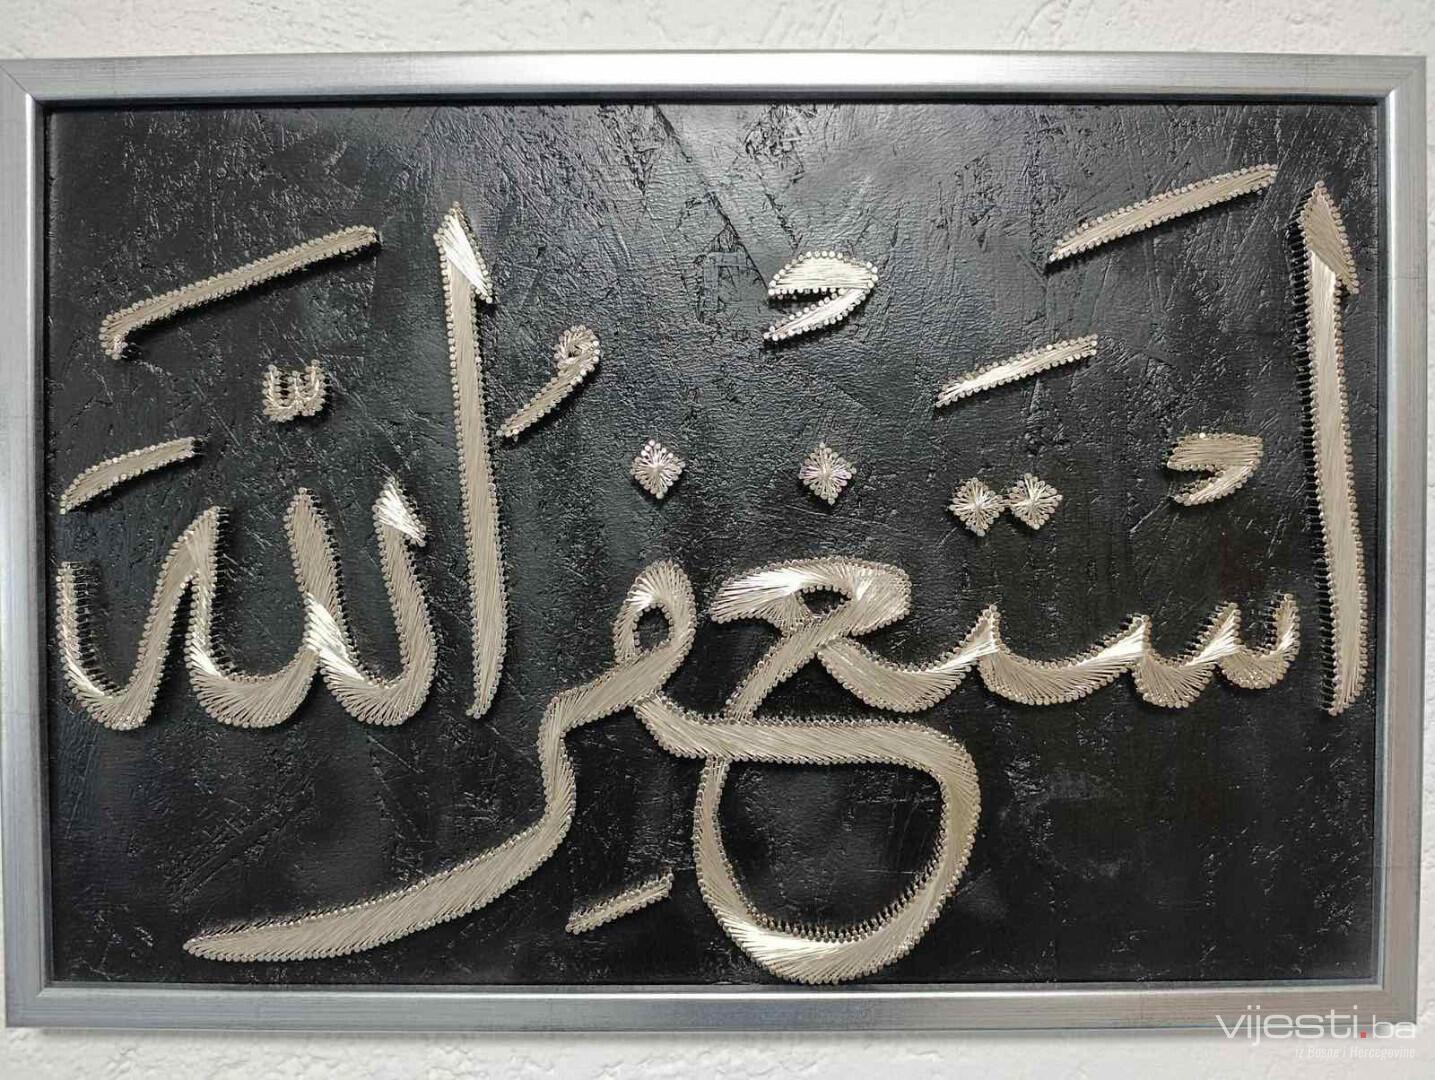 أَسْتَغْفِرُ اللّٰهَ
vijesti.ba
iz Bosne i Hercegovine